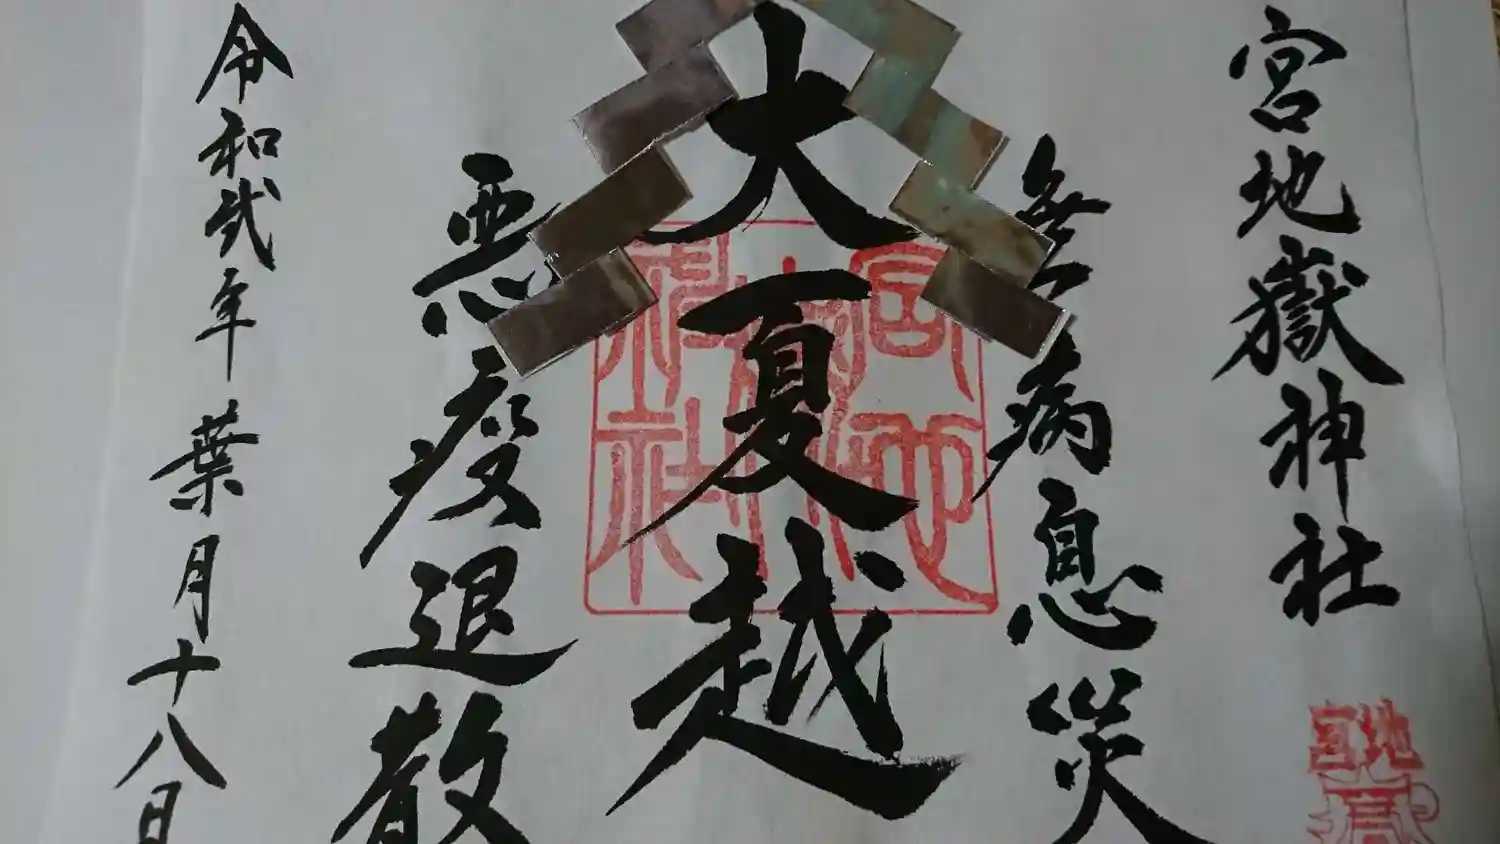 宮地嶽神社
無病息災
大夏越
悪疫退散
令和弐年葉月十八日
宮地嶽神社
宮地嶽